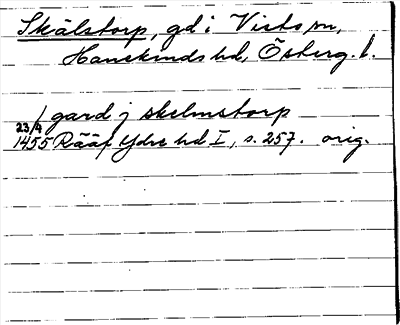 Skälstorp, gd i Vists sn,
Hanekinds hd, Österg. l.
1 gard j skelmstorp
23/9
1455 Rääf Ydre hd I, s. 257. orig.